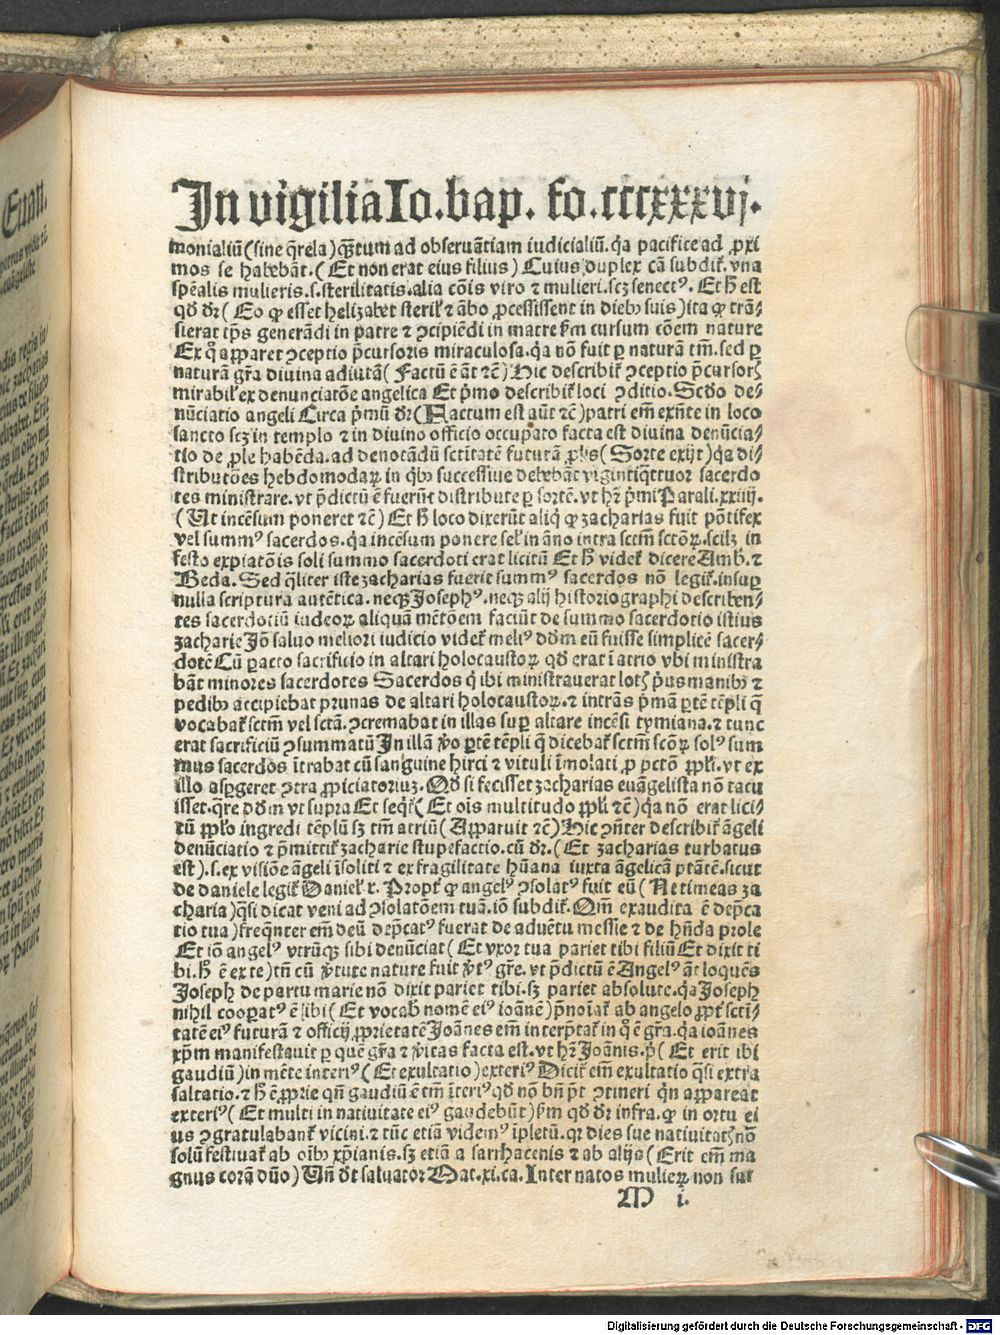 In vigilia Io. bap. fo. cccxxxvj.
moniliũ (sine q̃rela) q̃tum ad obseruãtiam iudicialiũ. q̃a pacifice ad ꝓxi
mos se habebãt. (Et non erat eius filius) Cuius duplex cã subdit̃. vna
spẽalis mulieris. s. sterilitatis. alia cõis viro ⁊ mulieri. scʒ senectꝰ. Et h̃ est
qđ dr̃ (Eo ꝙ esset helizabet steril̃ ⁊ ãbo ꝓcessissent in dieb⁹ suis) ita ꝙ trã⸗
sierat tp̃s generãdi in patre ⁊ ꝯcipiẽdi in matre ẜm cursum cõem nature
Ex q̃ apparet ꝯceptio p̃cursoris miraculosa. q̃a nõ fuit ꝑ naturã tm̃. sed ꝑ
naturã gr̃a diuina adiutã (Factũ ẽ ãt ⁊c̃) Hic describit̃ ꝯceptio p̃cursorꝭ
mirabil̃ ex denunciatõe angelica Et p̃mo describit̃ loci ꝯditio. Scđo de⸗
nũciatio angeli Circa p̃mũ dr̃ (Factum est aũt ⁊c̃) patri em̃ exñte in loco
sancto scʒ in templo ⁊ in diuino officio occupato facta est diuina denũcia⸗
tio de ꝓle habẽda. ad denotãdũ sctĩtatẽ futurã ꝓlis (Sorte exijt) q̃a di⸗
stributões hebdomodaꝝ in q̃b⁹ successiue debebãt vigintiq̃ttuor sacerdo
tes ministrare. vt p̃dictũ ẽ fuerũt distribute ꝑ sortẽ. vt hr̃ p̃mi Parali. xxiiij.
(Ut incẽsum poneret ⁊c̃) Et h̃ loco dixerũt aliq̃ ꝙ zacharias fuit põtifex
vel summꝰ sacerdos. q̃a incẽsum ponere sel̃ in ãno intra sctm̃ sctõꝝ. scilʒ in
festo expiatõis soli summo sacerdoti erat licitũ Et h̃ videt̃ dicere Amb. ⁊
Beda. Sed q̃liter iste zacharias fuerit summꝰ sacerdos nõ legit̃. insuꝑ
nulla scriptura autẽtica. neqʒ Josephꝰ. neqʒ alij historiographi describen⸗
tes sacerdotiũ iudeoꝝ aliquã mẽtõem faciũt de summo sacerdotio istius
zacharie Jõ saluo meliori iudicio videt̃ meliꝰ dõm eũ fuisse simplicẽ sacer⸗
dotẽ Cũ ꝑacto sacrificio in altari holocaustoꝝ qđ erat ĩ atrio vbi ministra
bãt minores sacerdotes Sacerdos q̃ ibi ministrauerat lotꝭ p̃us manib⁹ ⁊
pedib⁹ accipiebat prunas de altari holocaustoꝝ. ⁊ intrãs p̃mã ꝑtẽ tẽpli q̃
vocabat̃ sctm̃ vel sctã. ꝯcremabat in illas suꝑ altare incẽsi tymiana. ⁊ tunc
erat sacrificiũ ꝯsummatũ In illã ṽo ꝑtẽ tẽpli q̃ dicebat̃ sctm̃ scõꝝ solꝰ sum
mus sacerdos ĩtrabat cũ sanguine hirci ⁊ vituli ĩmolati ꝓ pctõ ꝓpl̃i. vt ex
illo asꝑgeret ꝯtra ꝓpiciatoriuʒ. Qđ si fecisset zacharias euãgelista nõ tacu
isset. q̃re dõm vt supra Et seqr̃ (Et ois multitudo ꝓpl̃i ⁊c̃) q̃a nõ erat lici⸗
tũ ꝓpl̃o ingredi tẽplũ sʒ tm̃ atriũ (Apparuit ⁊c̃) Hic ꝯñter describit̃ ãgeli
denũciatio ⁊ p̃mittit̃ zacharie stupefactio. cũ dr̃. (Et zacharias turbatus
est). s. ex visiõe ãgeli ĩsoliti ⁊ ex fragilitate hũana iuxta ãgelicã ptãtẽ. sicut
de daniele legit̃ Daniel̃ x. Propt̃ ꝙ angelꝰ ꝯsolatꝰ fuit eũ (Ne timeas za
charia) q̃si dicat veni ad ꝯsolatõem tuã. iõ subdit̃. Qm̃ exaudita ẽ dep̃ca
tio tua) freq̃nter em̃ deũ dep̃catꝰ fuerat de aduẽtu messie ⁊ de hñda prole
Et iõ angelꝰ vtrũqʒ sibi denũciat (Et vxor tua pariet tibi filiũ Et dixit ti
bi. h̃ ẽ ex te) tñ cũ ṽtute nature fuit ṽtꝰ gr̃e. vt p̃dictũ ẽ Angelꝰ ãt loquẽs
Joseph de partu marie nõ dixit pariet tibi. sʒ pariet absolute. q̃a Joseph
nihil cooꝑatꝰ ẽ ibi (Et vocab̃ nomẽ eiꝰ ioãnẽ) p̃notat̃ ab angelo ꝓpt̃ sctĩ⸗
tatẽ eiꝰ futurã ⁊ officij ꝓprietatẽ Joãnes em̃ interp̃tat̃ in q̃ ẽ gr̃a. q̃a ioãnes
xp̃m manifestauit ꝑ quẽ gr̃a ⁊ ṽitas facta est. vt hr̃ Joãnis. p̃ (Et erit ibi
gaudiũ) in mẽte interiꝰ (Et exultatio) exteriꝰ Dicit̃ em̃ exultatio q̃si extra
saltatio. ⁊ h̃ ẽ ꝓprie qñ gaudiũ ẽ tm̃ ĩteriꝰ qđ nõ bñ pt̃ ꝯtineri qñ appareat
exteriꝰ (Et multi in natiuitate eiꝰ gaudebũt) ẜm qđ dr̃ infra. ꝙ in ortu ei
us ꝯgratulabant̃ vicini. ⁊ tũc etiã videmꝰ ĩpletũ. qꝛ dies sue natiuitatꝭ nõ
solũ festiuat̃ ab oib⁹ xp̃ianis. sʒ etiã a sarrhacenis ⁊ ab alijs (Erit em̃ ma
gnus corã dño) Uñ dt̃ saluator Mat. xi. ca. Inter natos mulieꝝ non sur
M i.
Digitalisierung gefördert durch die Deutsche Forschungsgemeinschaft - DFG